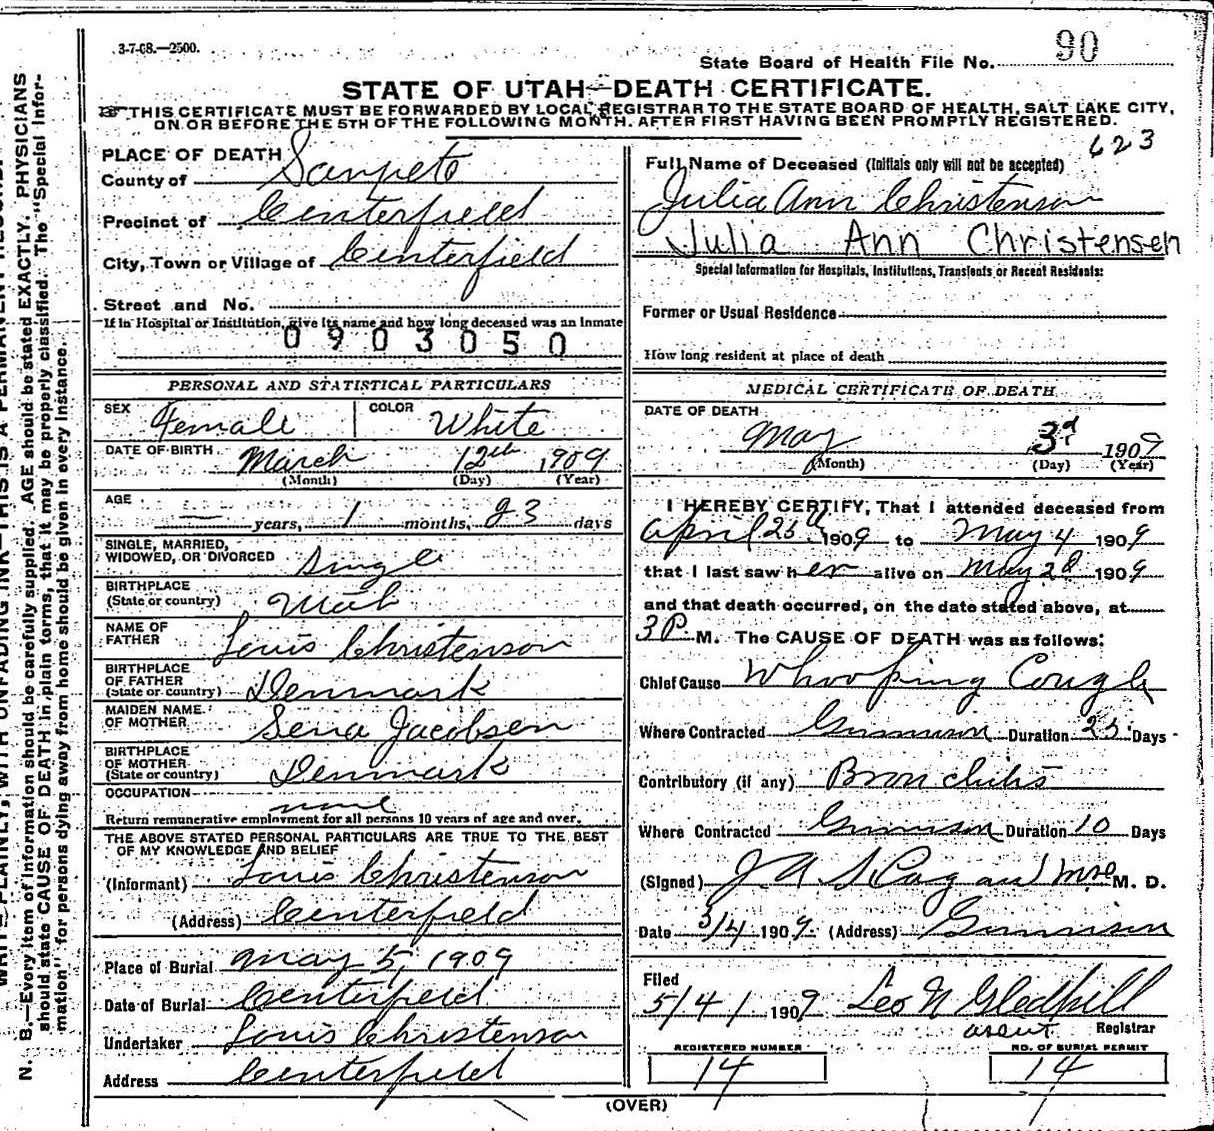 3-7-08.—2500.
90
State Board of Health File No.
STATE OF UTAH—DEATH CERTIFICATE.
THIS CERTIFICATE MUST BE FORWARDED BY LOCAL REGISTRAR TO THE STATE BOARD OF HEALTH, SALT LAKE CITY,
ON OR BEFORE THE 5TH OF THE FOLLOWING MONTH. AFTER FIRST HAVING BEEN PROMPTLY REGISTERED.
623
PLACE OF DEATH
County of Sanpete
Precinct of Centerfield
City, Town or Village of Centerfield
Street and No.
If in Hospital or Institution, give its name and how long deceased was an Inmate
0903050
Full Name of Deceased (Initials only will not be accepted)
Julia Ann Christenson
Julia Ann Christensen
Special Information for Hospitals, Institutions, Transients or Recent Residents:
Former or Usual Residence
How long resident at place of death
PERSONAL AND STATISTICAL PARTICULARS
SEX Female COLOR White
DATE OF BIRTH March 12th, 1909
(Month) (Day) (Year)
AGE — years, 1 months, 23 days
SINGLE, MARRIED,
WIDOWED, OR DIVORCED Single
BIRTHPLACE
(State or country) Utah
NAME OF
FATHER Louis Christenson
BIRTHPLACE
OF FATHER
(State or country) Denmark
MAIDEN NAME
OF MOTHER Sena Jacobsen
BIRTHPLACE
OF MOTHER
(State or country) Denmark
OCCUPATION
none
Return remunerative employment for all persons 10 years of age and over.
THE ABOVE STATED PERSONAL PARTICULARS ARE TRUE TO THE BEST
OF MY KNOWLEDGE AND BELIEF
(Informant) Louis Christenson
(Address) Centerfield
Place of Burial May 5, 1909
Date of Burial Centerfield
Undertaker Louis Christenson
Address Centerfield
MEDICAL CERTIFICATE OF DEATH
DATE OF DEATH
May 3d 1909
(Month) (Day) (Year)
I HEREBY CERTIFY, That I attended deceased from
April 25th 1909 to May 4 1909
that I last saw her alive on May 2d 1909
and that death occurred, on the date stated above, at
3 P. M. The CAUSE OF DEATH was as follows:
Chief Cause Whooping Cough
Where Contracted Gunnison Duration 25 Days
Contributory (if any) Bronchitis
Where Contracted Gunnison Duration 10 Days
(Signed) J A M. D.
Date 3/4 1909. (Address) Gunnison
Filed
5/4/ 1909 Leo N Gledhill
Registrar
REGISTERED NUMBER
14
NO. OF BURIAL PERMIT
14
(OVER)
N. B.—Every item of Information should be carefully supplied. AGE should be stated EXACTLY. PHYSICIANS
should state CAUSE OF DEATH in plain terms, that it may be properly classified. The "Special Infor-
mation" for persons dying away from home should be given in every instance.